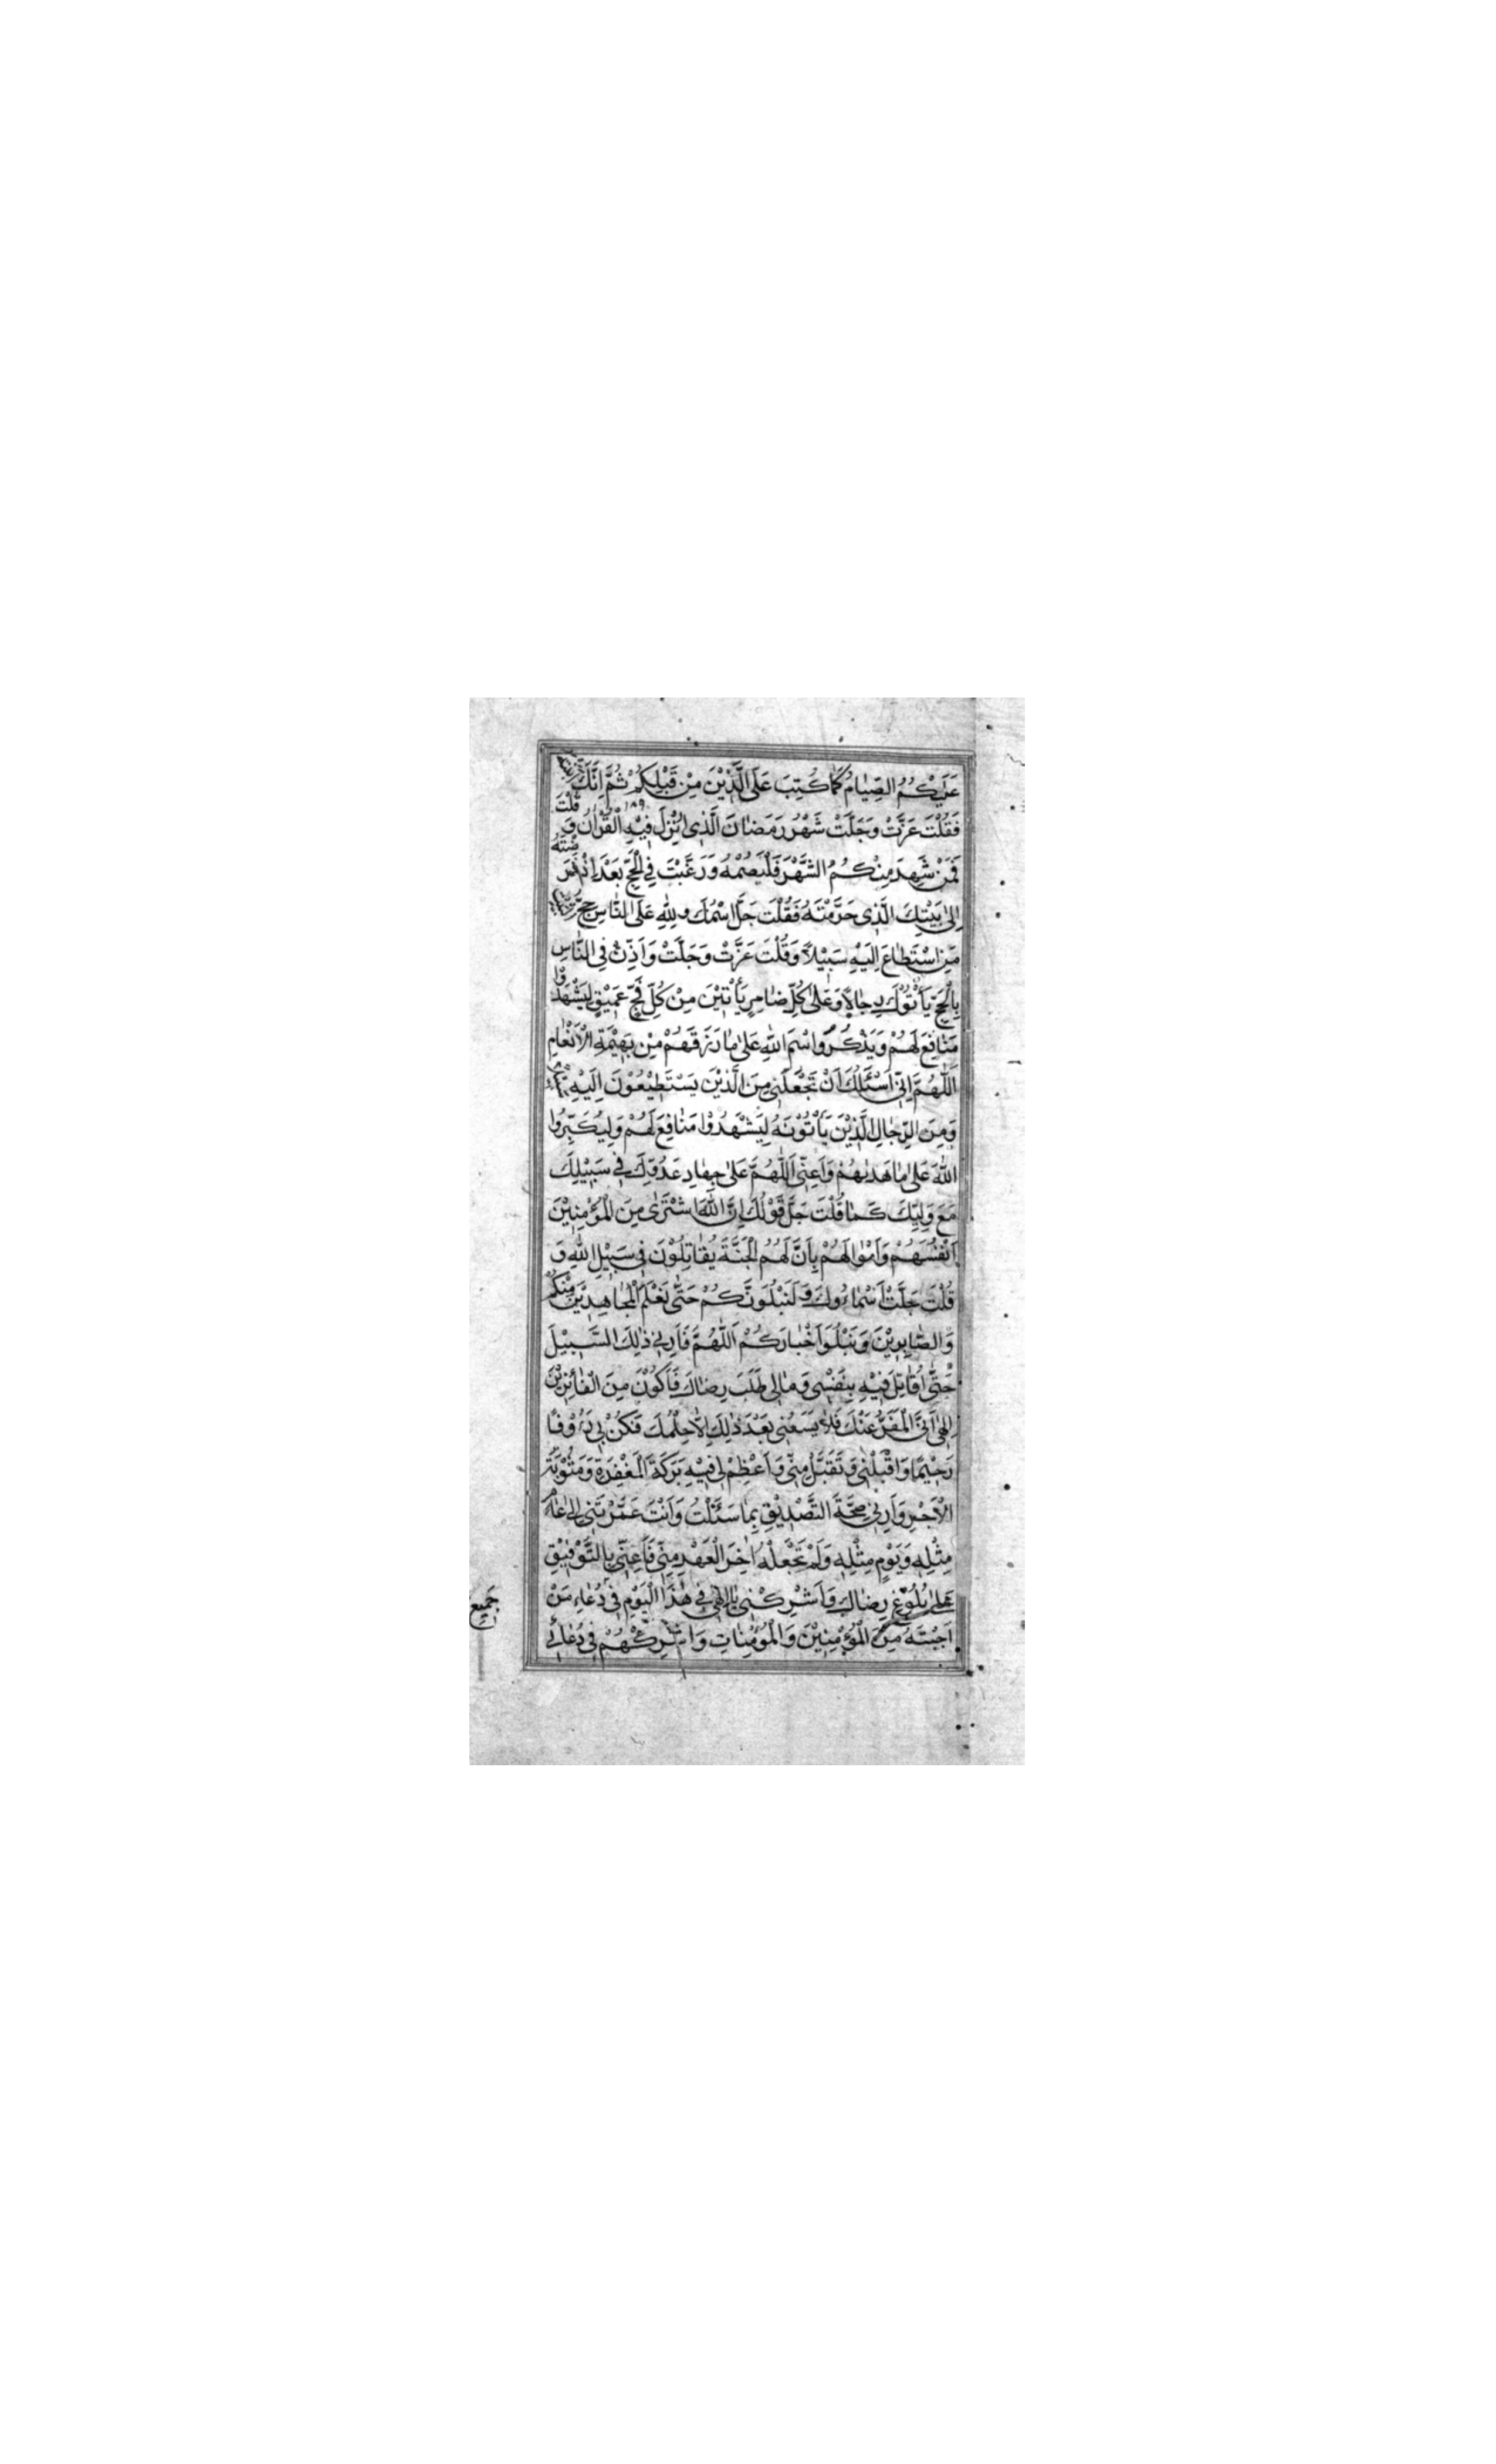 عَلَيْكُمُ الصِّيَامُ كَمَا كُتِبَ عَلَى الَّذِيْنَ مِنْ قَبْلِكُمْ ثُمَّ اِنَّكَ
فَقُلْتَ عَزَّتْ وَجَلَّتْ شَهْرُ رَمَضَانَ الَّذِى اُنْزِلَ فِيْهِ الْقُرْاٰنُ وَ قُلْتَ
فَمَنْ شَهِدَ مِنْكُمُ الشَّهْرَ فَلْيَصُمْهُ وَرَغَّبْتَ فِى الْحَجِّ بَعْدَ اِذْ فَرَضْتَهُ
اِلٰى بَيْتِكَ الَّذِى حَرَّمْتَهُ فَقُلْتَ جَلَّ اسْمُكَ وَلِلّٰهِ عَلَى النَّاسِ حِجُّ
مَنِ اسْتَطَاعَ اِلَيْهِ سَبِيْلًا وَقُلْتَ عَزَّتْ وَجَلَّتْ وَاَذِّنْ فِى النَّاسِ
بِالْحَجِّ يَأْتُوْكَ رِجَالًا وَعَلٰى كُلِّ ضَامِرٍ يَأْتِيْنَ مِنْ كُلِّ فَجٍّ عَمِيْقٍ لِيَشْهَدُوْا
مَنَافِعَ لَهُمْ وَيَذْكُرُوا اسْمَ اللّٰهِ عَلٰى مَا رَزَقَهُمْ مِنْ بَهِيْمَةِ الْاَنْعَامِ
اَللّٰهُمَّ اِنِّى اَسْئَلُكَ اَنْ تَجْعَلَنِى مِنَ الَّذِيْنَ يَسْتَطِيْعُوْنَ اِلَيْهِ
وَمِنَ الرِّجَالِ الَّذِيْنَ يَأْتُوْنَهُ لِيَشْهَدُوْا مَنَافِعَ لَهُمْ وَلِيُكَبِّرُوا
اللّٰهَ عَلٰى مَا هَدٰيهُمْ وَاَعِنِّى اَللّٰهُمَّ عَلٰى جِهَادِ عَدُوِّكَ فِى سَبِيْلِكَ
مَعَ وَلِيِّكَ كَمَا قُلْتَ جَلَّ قَوْلُكَ اِنَّ اللّٰهَ اشْتَرٰى مِنَ الْمُؤْمِنِيْنَ
اَنْفُسَهُمْ وَاَمْوَالَهُمْ بِاَنَّ لَهُمُ الْجَنَّةَ يُقَاتِلُوْنَ فِى سَبِيْلِ اللّٰهِ وَ
قُلْتَ جَلَّتْ اَسْمَاءُوكَ وَلَنَبْلُوَنَّكُمْ حَتّٰى نَعْلَمَ الْمُجَاهِدِيْنَ مِنْكُمْ
وَالصَّابِرِيْنَ وَنَبْلُوَا اَخْبَارَكُمْ اَللّٰهُمَّ فَاَرِنِى ذٰلِكَ السَّبِيْلَ
حَتّٰى اُقَاتِلَ فِيْهِ بِنَفْسِى وَمَالِى طَلَبَ رِضَاكَ فَاَكُوْنَ مِنَ الْفَائِزِيْنَ
اِلٰهِى اَيْنَ الْمَفَرُّ عَنْكَ فَلَا يَسَعُنِى بَعْدَ ذٰلِكَ اِلَّا حِلْمُكَ فَكُنْ بِى رَءُوْفًا
رَحِيْمًا وَاقْبَلْنِى وَتَقَبَّلْ مِنِّى وَاَعْظِمْ لِى فِيْهِ بَرَكَةَ الْمَغْفِرَةِ وَمَثُوْبَةَ
الْاَجْرِ وَاَرِنِى صِحَّةَ التَّصْدِيْقِ بِمَا سَئَلْتُ وَاَنْتَ عَمَّرْتَنِى اِلٰى عَامٍ
مِثْلِهِ وَيَوْمٍ مِثْلِهِ وَلَمْ تَجْعَلْهُ اٰخِرَ الْعَهْدِ مِنِّى فَاَعِنِّى بِالتَّوْفِيْقِ
عَلٰى بُلُوْغِ رِضَاكَ وَاَشْرِكْنِى يَا اِلٰهِى فِى هٰذَا الْيَوْمِ فِى دُعَاءِ مَنْ
اَجَبْتَهُ مِنَ الْمُؤْمِنِيْنَ وَالْمُؤْمِنَاتِ وَاَشْرِكْهُمْ فِى دُعَائِى
جَمِيعَ